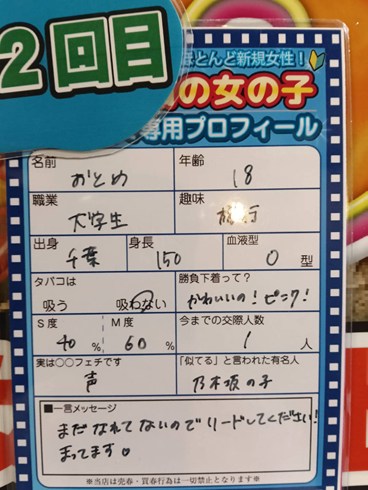 2回目
ほとんど新規女性！
の女の子
専用プロフィール
名前 年齢
おとめ 18
職業 趣味
大学生 旅行
出身 身長 血液型
千葉 150 O型
タバコは 勝負下着って？
吸う 吸わない かわいいの！ピンク！
S度 M度 今までの交際人数
40% 60% 1人
実は○○フェチです 「似てる」と言われた有名人
声 乃木坂の子
■一言メッセージ
まだなれてないのでリードしてください！
まってます。
※当店は売春・買春行為は一切禁止となります※